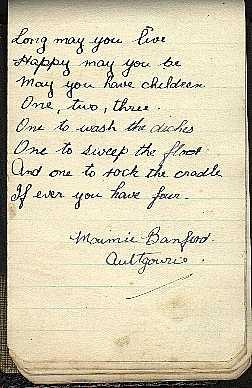 Long may you live
Happy may you be
May you have children
One, two, three.
One to wash the diches
One to sweep the floor
And one to rock the cradle
If ever you have four.
Maimie Banford.
Aultgowrie.